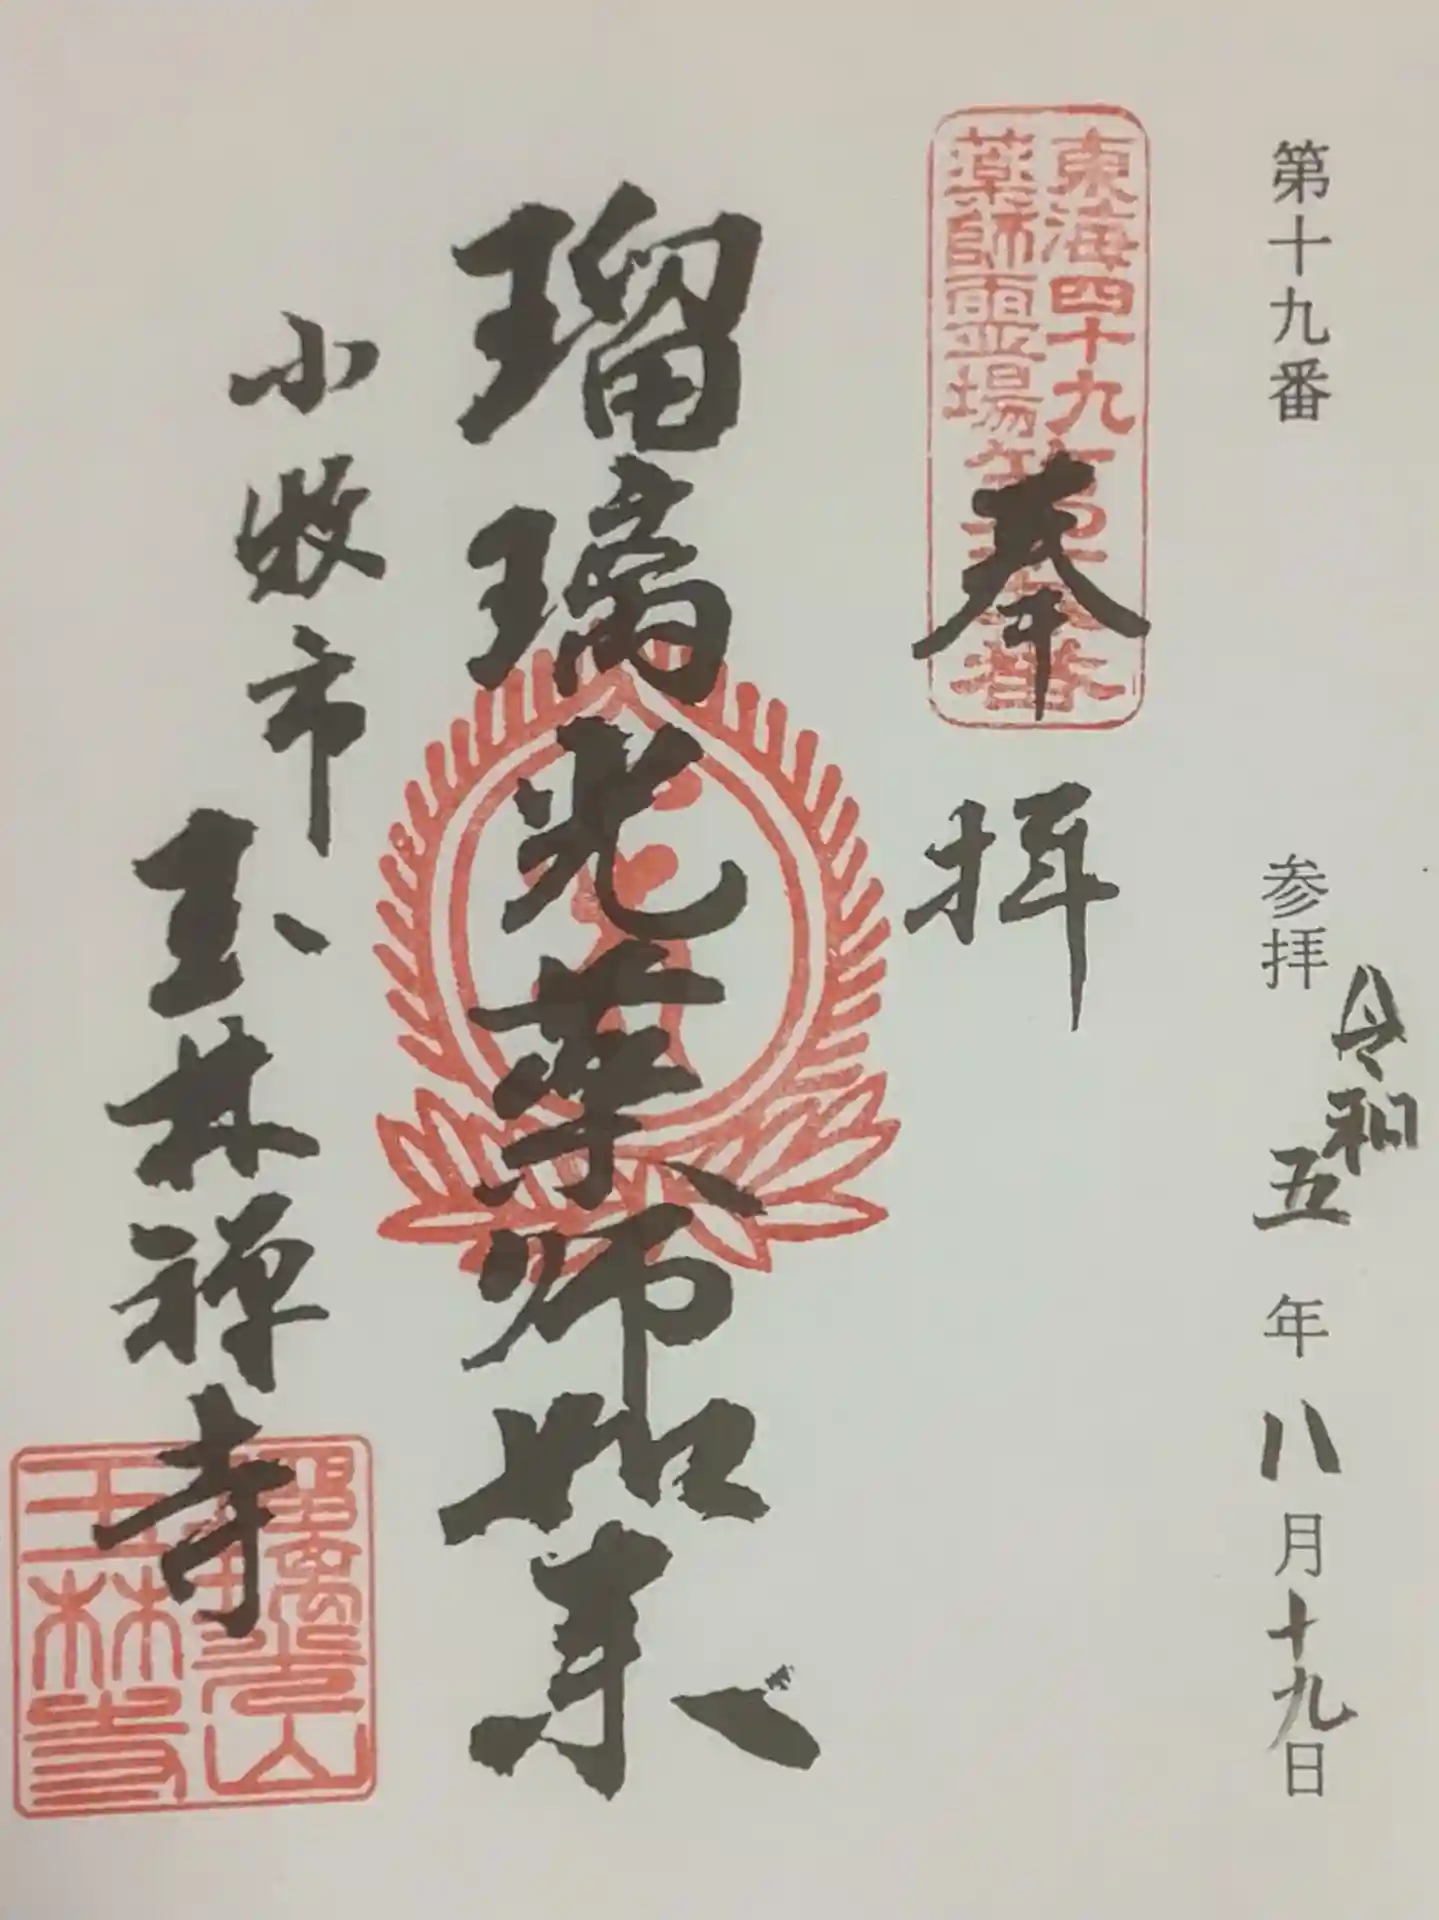 第十九番
参拝 令和五年八月十九日
東海四十九
薬師霊場
第十九番
奉拝
瑠璃光薬師如来
小牧市
玉林禅寺
瑠璃光山
玉林寺